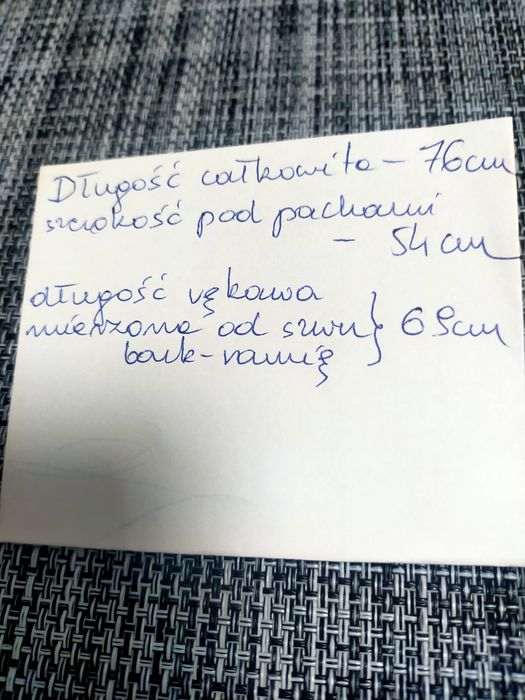 Długość całkowita - 76cm
szerokość pod pachami
- 54 cm
długość rękawa
mierzona od szwu } 69cm
bark-ramię